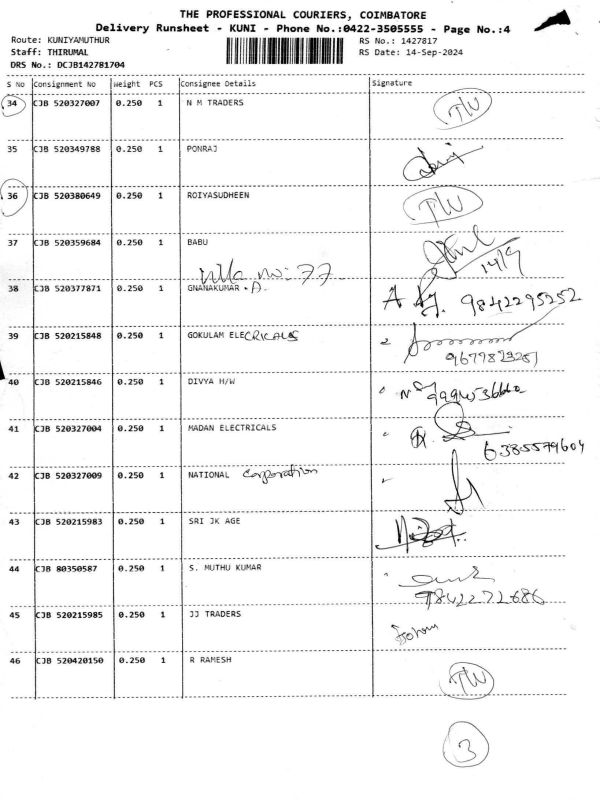 THE PROFESSIONAL COURIERS, COIMBATORE
Delivery Runsheet - KUNI - Phone No.:0422-3505555 - Page No.:4
Route: KUNIYAMUTHUR RS No.: 1427817
Staff: THIRUMAL RS Date: 14-Sep-2024
DRS No.: DCJB142781704
S No Consignment No Weight PCS Consignee Details Signature
34 CJB 520327007 0.250 1 N M TRADERS
35 CJB 520349788 0.250 1 PONRAJ
36 CJB 520380649 0.250 1 ROIYASUDHEEN
37 CJB 520359684 0.250 1 BABU 14/9
Villa no: 77
38 CJB 520377871 0.250 1 GNANAKUMAR . A. 9842295252
39 CJB 520215848 0.250 1 GOKULAM ELECRICALS
40 CJB 520215846 0.250 1 DIVYA H/W
41 CJB 520327004 0.250 1 MADAN ELECTRICALS
6385579604
42 CJB 520327009 0.250 1 NATIONAL Corporation
43 CJB 520215983 0.250 1 SRI JK AGE
44 CJB 80350587 0.250 1 S. MUTHU KUMAR
9842272686
45 CJB 520215985 0.250 1 JJ TRADERS
46 CJB 520420150 0.250 1 R RAMESH
3